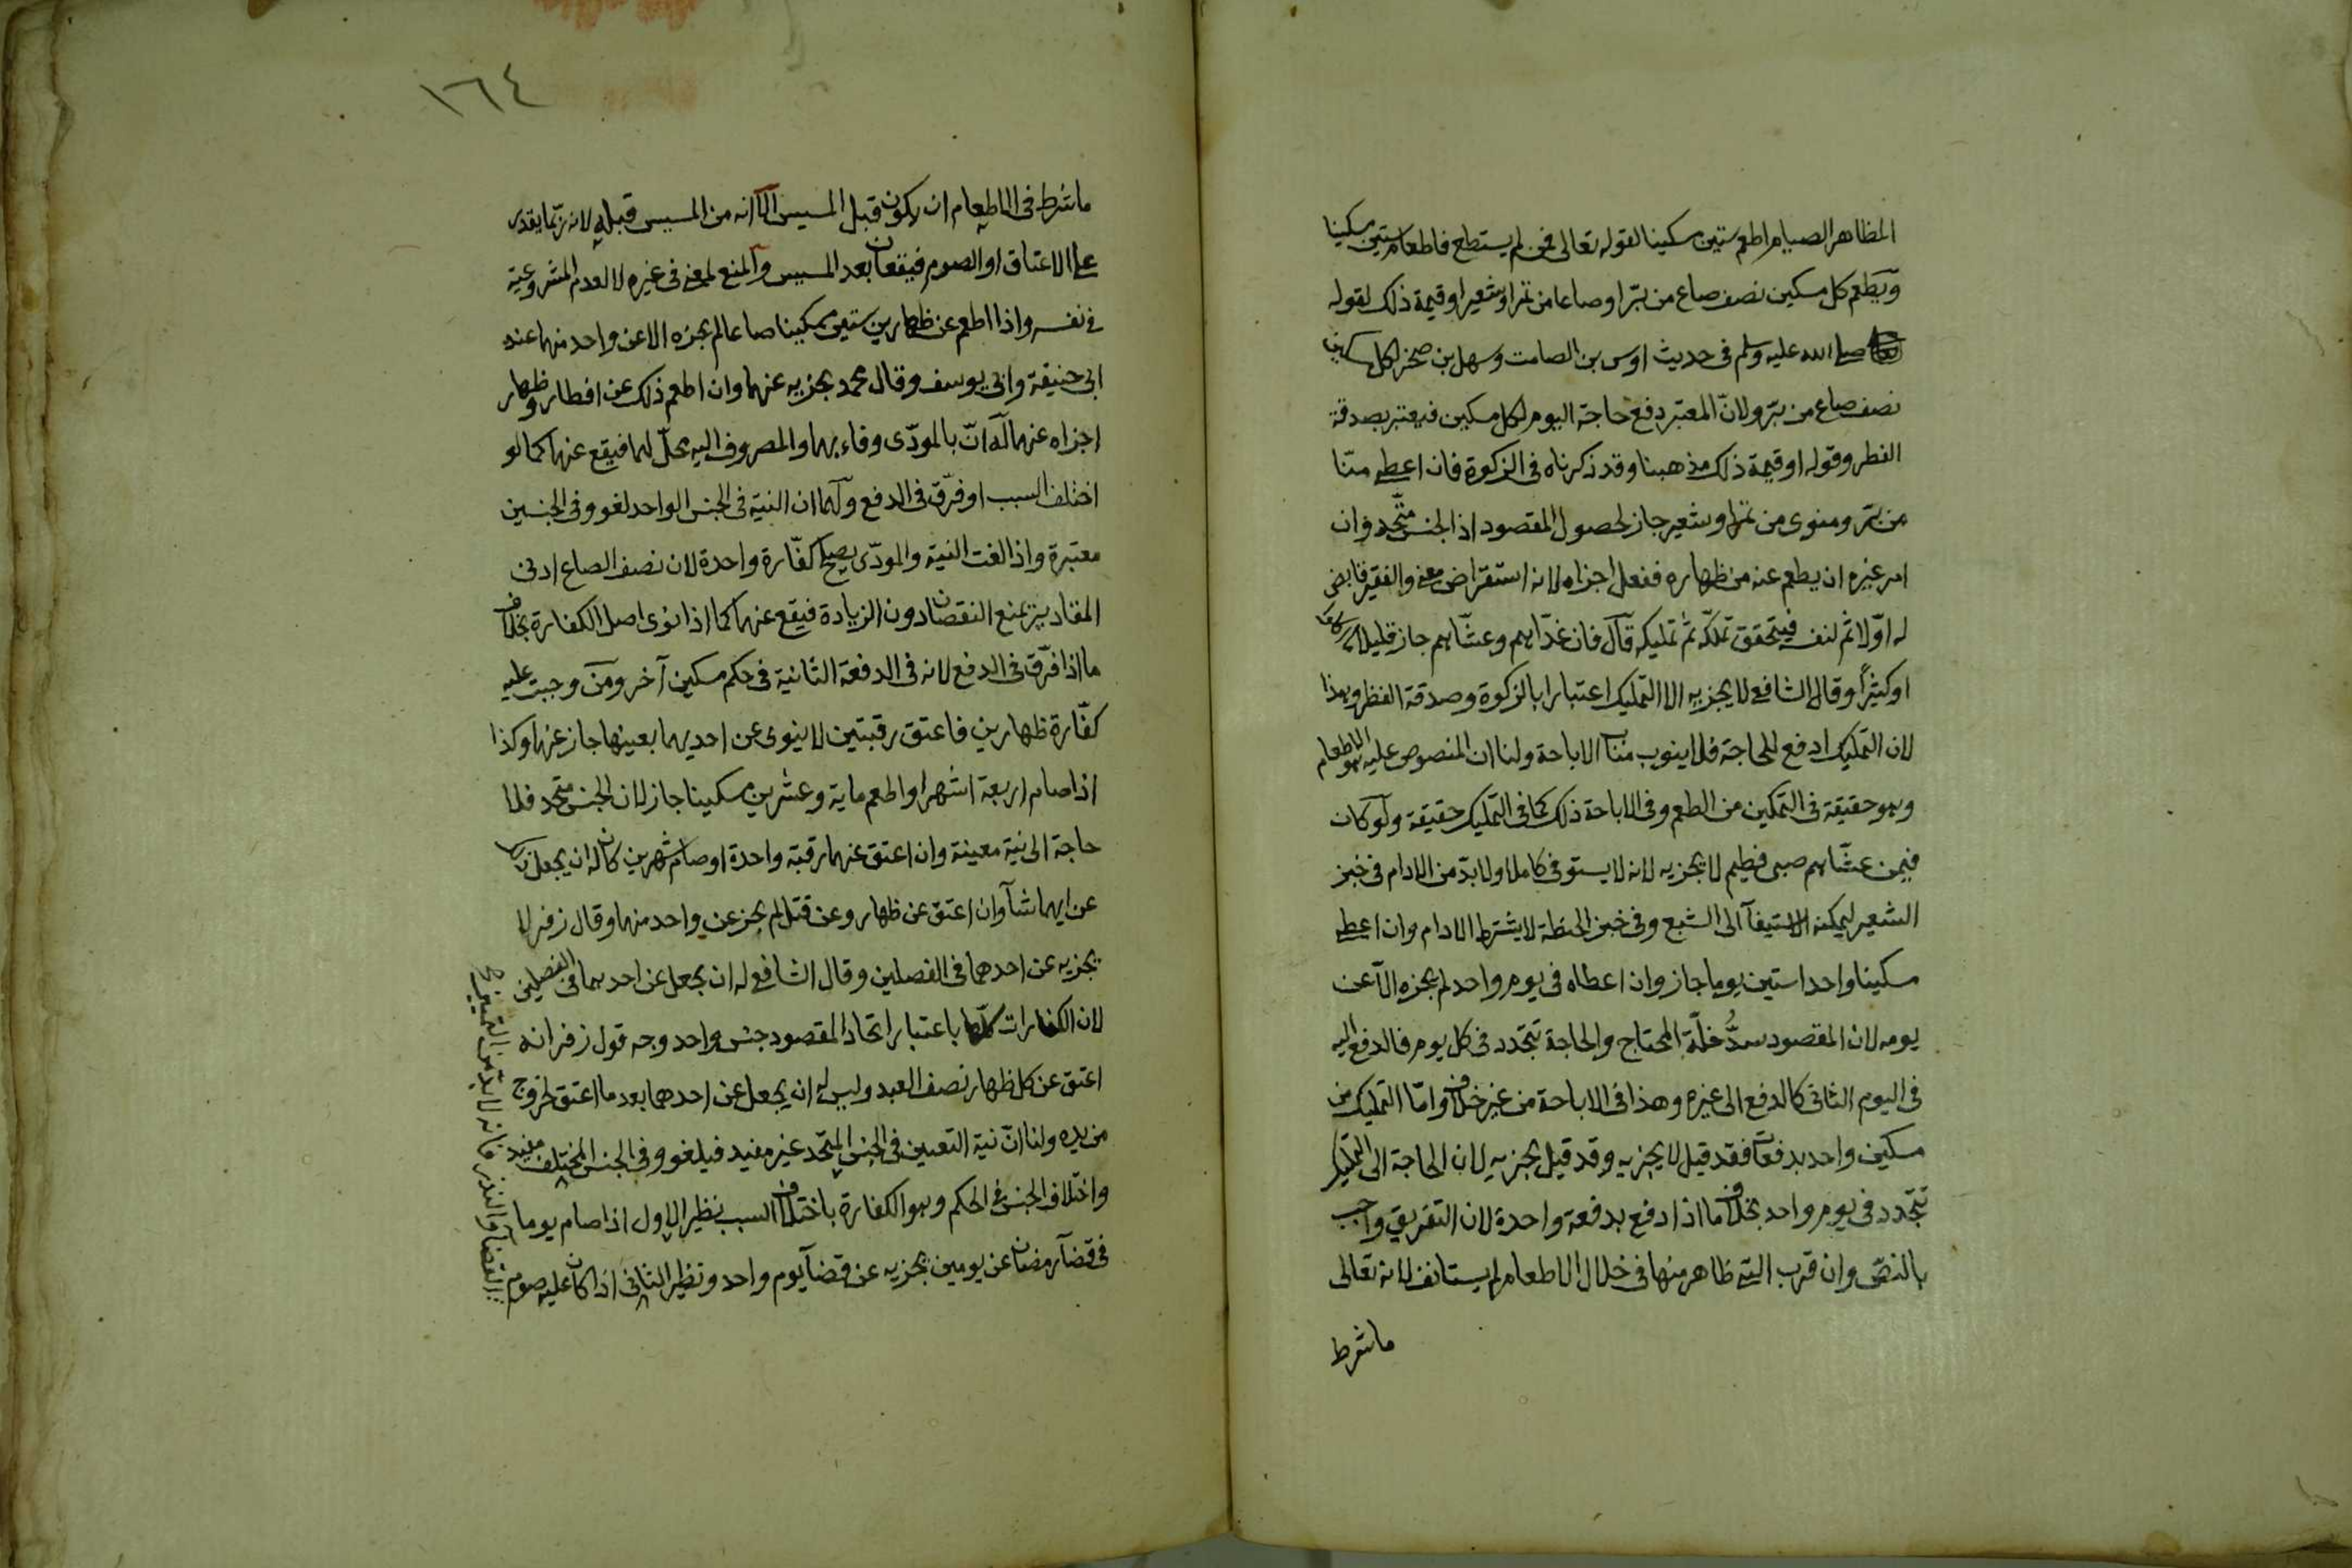 المظاهر الصيام اطعم ستين مسكينا لقوله تعالى فمن لم يستطع فاطعام ستين مسكينا
ويطعم كل مسكين نصف صاع من برّ او صاعا من تمر او شعير او قيمة ذلك لقوله
صلى الله عليه وسلم فى حديث اوس بن الصامت وسهل بن صخر لكل مسكين
نصف صاع من برّ ولانّ المعتبر دفع حاجة اليوم لكل مسكين فيعتبر بصدقة
الفطر وقوله او قيمة ذلك مذهبنا وقد ذكرناه فى الزكوة فان اعطى منّا
من برّ ومنوى من تمر او شعير جاز لحصول المقصود اذ الجنس متّحد وان
امر غيره ان يطعم عنه من ظهاره ففعل اجزاه لانه استقراض معنى والفقير قابض
له اوّلا ثم لنفسه فيتحقق تملكّه ثم تمليكه قال فان غدّاهم وعشّاهم جاز قليلا
او كثيرًا وقال الشافعى لا يجزيه الا التمليك اعتبارا بالزكوة وصدقة الفطر وهذا
لان التمليك ادفع للحاجة فلا ينوب منابه الاباحة ولنا ان المنصوص عليه هو الاطعام
وهو حقيقة فى التمكين من الطعم وفى الاباحة ذلك كما فى التمليك حقيقة ولو كان
فيمن عشّاهم صبى فطيم لا يجزيه لانه لا يستوفى كاملا ولا بدّ من الادام فى خبز
الشعير ليمكنه الاستيفآ الى الشبع وفى خبز الحنطة لا يشترط الادام وان اعطى
مسكينا واحدا ستين يوما جاز وان اعطاه فى يوم واحد لم يجزه الّا عن
يومه لان المقصود سدُّ خلّة المحتاج والحاجة تتجّدد فى كل يوم فالدفع اليه
فى اليوم الثانى كالدفع الى غيره وهذا فى الاباحة من غير خلاف وامّا التمليك من
مسكين واحد بدفعات فقد قيل لا يجزيه وقد قيل يجزيه لان الحاجة الى التمليك
تتجّدد فى يوم واحد بخلاف ما اذا دفع بدفعة واحدة لان التفريق واجب
بالنصّ وان قرب التى ظاهر منها فى خلال الاطعام لم يستانف لانه تعالى
ما شرط
١٦٤
ما شرط فى الاطعام ان يكون قبل المسيس الّا انه من المسيس قبله لانه ربّما يقدر
على الاعتاق او الصوم فيقعان بعد المسيس والمنع لمعنى فى غيره لا لعدم المشروعية
فى نفسه واذا اطعم عن ظهارين ستين مسكينا صاعا لم يجزه الا عن واحد منهما عند
ابى حنيفة وابى يوسف وقال محمد يجزيه عنهما وان اطعم ذلك عن افطار وظهار
اجزاه عنهما له انّ بالمودّى وفاء بهما والمصروف اليه محلّ لهما فيقع عنهما كما لو
اختلف السبب او فرّق فى الدفع ولهما ان النية فى الجنس الواحد لغو وفى الجنسين
معتبرة واذا لغت النية والمودّى يصلح كفّارة واحدة لان نصف الصاع ادنى
المقادير يمنع النقصان دون الزيادة فيقع عنهما كما اذا نوى اصل الكفارة بخلاف
ما اذا فرّق فى الدفع لانه فى الدفعة الثانية فى حكم مسكين آخر ومن وجبت عليه
كفّارة ظهارين فاعتق رقبتين لا ينوى عن احديهما بعينها جاز عنهما وكذا
اذا صام اربعة اشهر او اطعم ماية وعشرين مسكينا جاز لان الجنس متحد فلا
حاجة الى نية معينة وان اعتق عنهما رقبة واحدة او صام شهرين كان له ان يجعل ذلك
عن ايهما شآ وان اعتق عن ظهار وعن قتل لم يجز عن واحد منهما وقال زفر لا
يجزيه عن احدهما فى الفصلين وقال الشافعى له ان يجعل عن احدهما فى الفصلين
لان الكفارات كلّها باعتبار اتحاد المقصود جنس واحد وجه قول زفر انه
اعتق عن كل ظهار نصف العبد وليس له ان يجعل عن احدهما بعد ما اعتق لخروج
من يده ولنا انّ نية التعيين فى الجنس المتّحد غير مفيد فيلغو وفى الجنس المختلف مفيد
واختلاف الجنس فى الحكم وهو الكفارة باختلاف السبب نظير الاول اذا صام يوما
فى قضآ رمضان عن يومين يجزيه عن قضآ يوم واحد ونظير الثانى اذا كان عليه صوم
القضآ والنذر فانه لا بد من التمييز